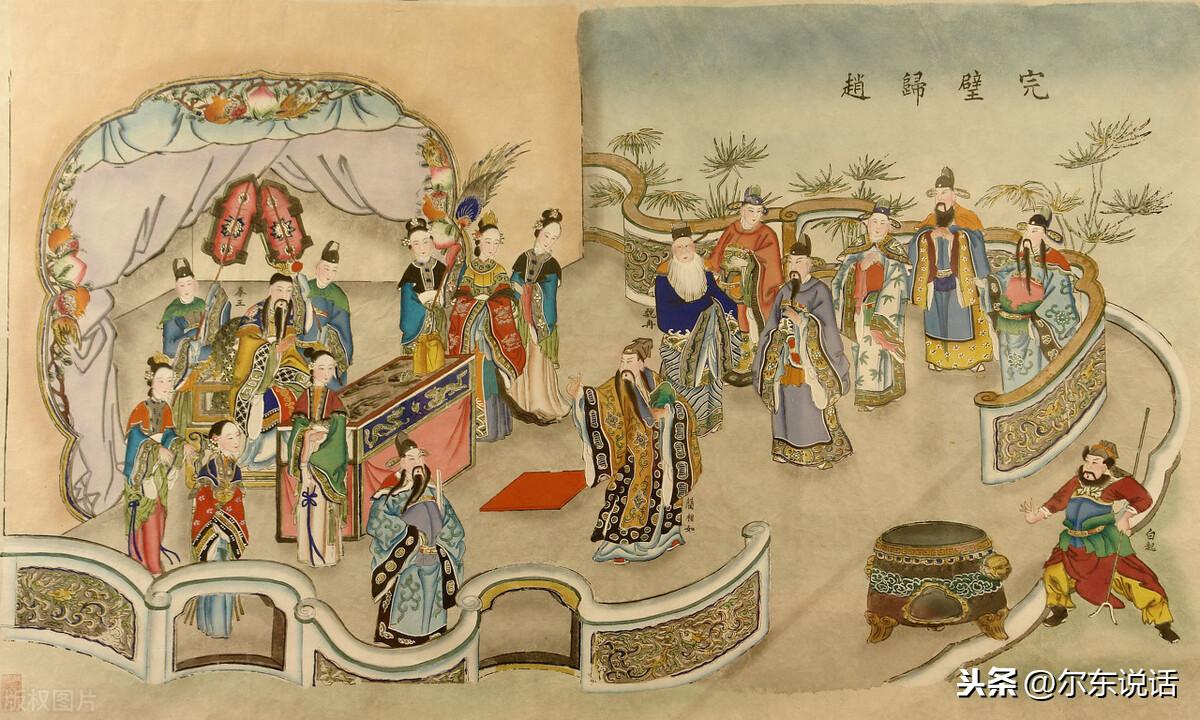 完璧歸趙
秦王
魏冉
藺相如
白起
头条 @尔东说话
版权图片